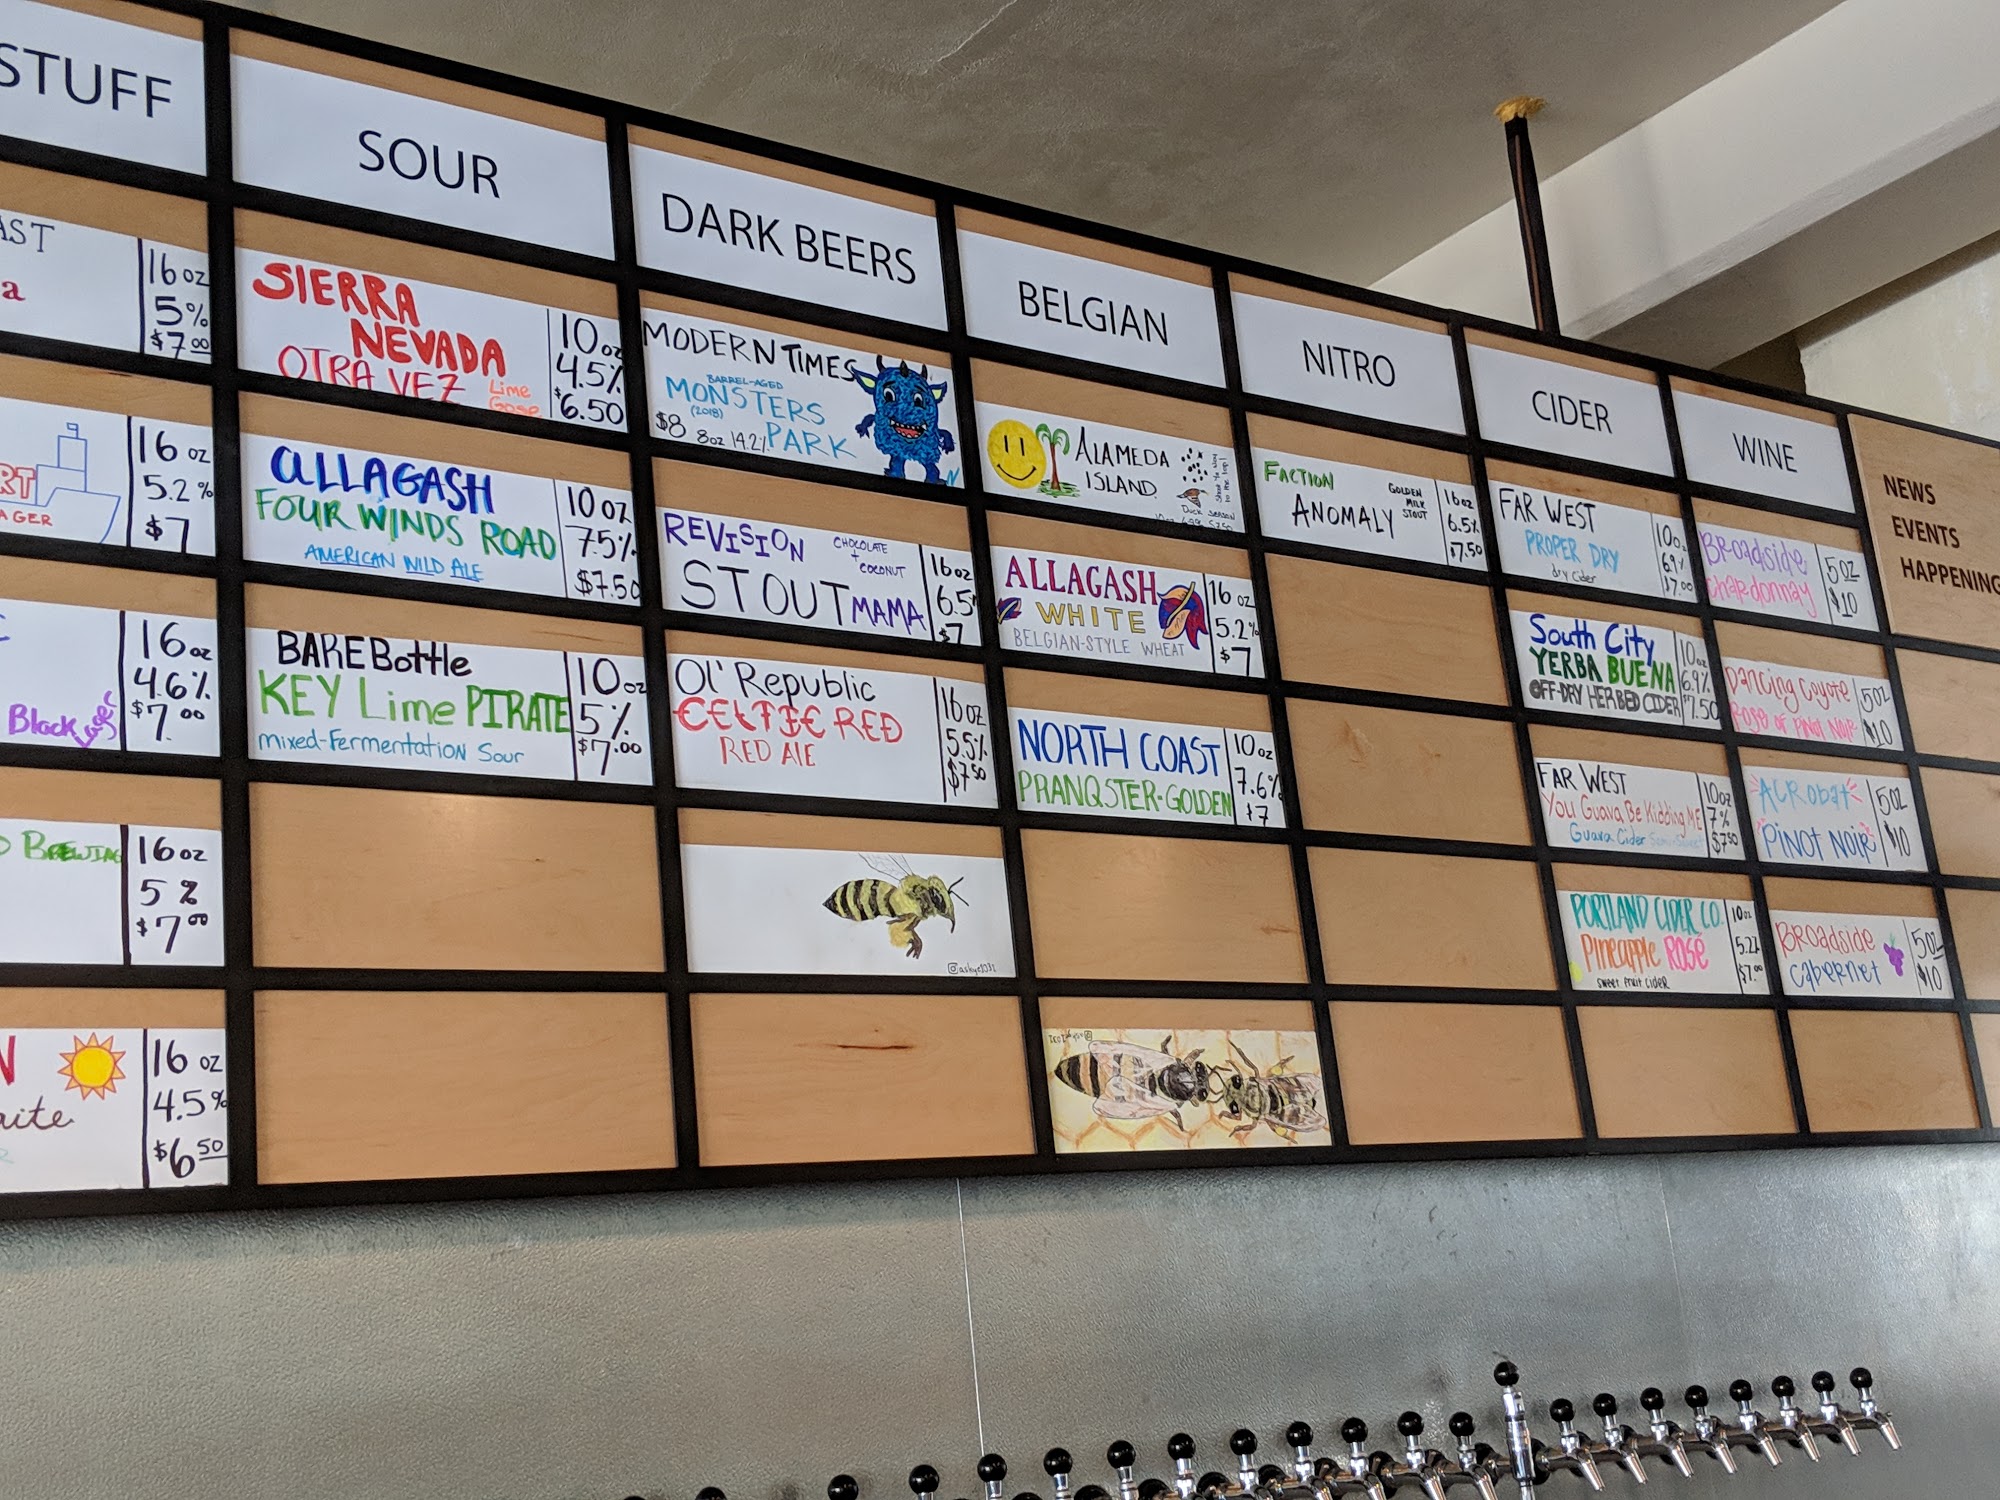 STUFF
16 oz
5%
$7.00
16 oz
5.2%
$7
16 oz
4.6%
$7.00
Black Lager
BREWING
16 oz
5%
$7.00
16 oz
4.5%
$6.50
SOUR
SIERRA
NEVADA
OTRA VEZ
Lime
Gose
10 oz
4.5%
$6.50
ALLAGASH
FOUR WINDS ROAD
AMERICAN WILD ALE
10 oz
7.5%
$7.50
BARE Bottle
KEY Lime PIRATE
mixed-Fermentation Sour
10 oz
5%
$7.00
DARK BEERS
MODERN TIMES
BARREL-AGED
MONSTERS
(2018)
PARK
$8 8oz 14.2%
REVISION
CHOCOLATE
+
COCONUT
STOUT MAMA
16 oz
6.5
$7
Ol' Republic
CELTIC RED
RED ALE
16 oz
5.5%
$7.50
BELGIAN
ALAMEDA
ISLAND
Duck season
ALLAGASH
WHITE
BELGIAN-STYLE WHEAT
16 oz
5.2%
$7
NORTH COAST
PRANQSTER-GOLDEN
10 oz
7.6%
$7
NITRO
FACTION
ANOMALY
GOLDEN
MILK
STOUT
16 oz
6.5%
$7.50
CIDER
FAR WEST
PROPER DRY
dry cider
10 oz
6.9%
$7.00
South City
YERBA BUENA
OFF-DRY HERBED CIDER
10 oz
6.9%
$7.50
FAR WEST
You Guava Be Kidding ME
Guava Cider Semi-Sweet
10 oz
7%
$7.50
PORTLAND CIDER CO.
Pineapple Rosé
SWEET FRUIT CIDER
10 oz
5.2%
$7.00
WINE
Broadside
Chardonnay
5 oz
$10
Dancing Coyote
Rosé of PINOT NOIR
5 oz
$10
Acrobat
PINOT NOIR
5 oz
$10
Broadside
Cabernet
5 oz
$10
NEWS
EVENTS
HAPPENING